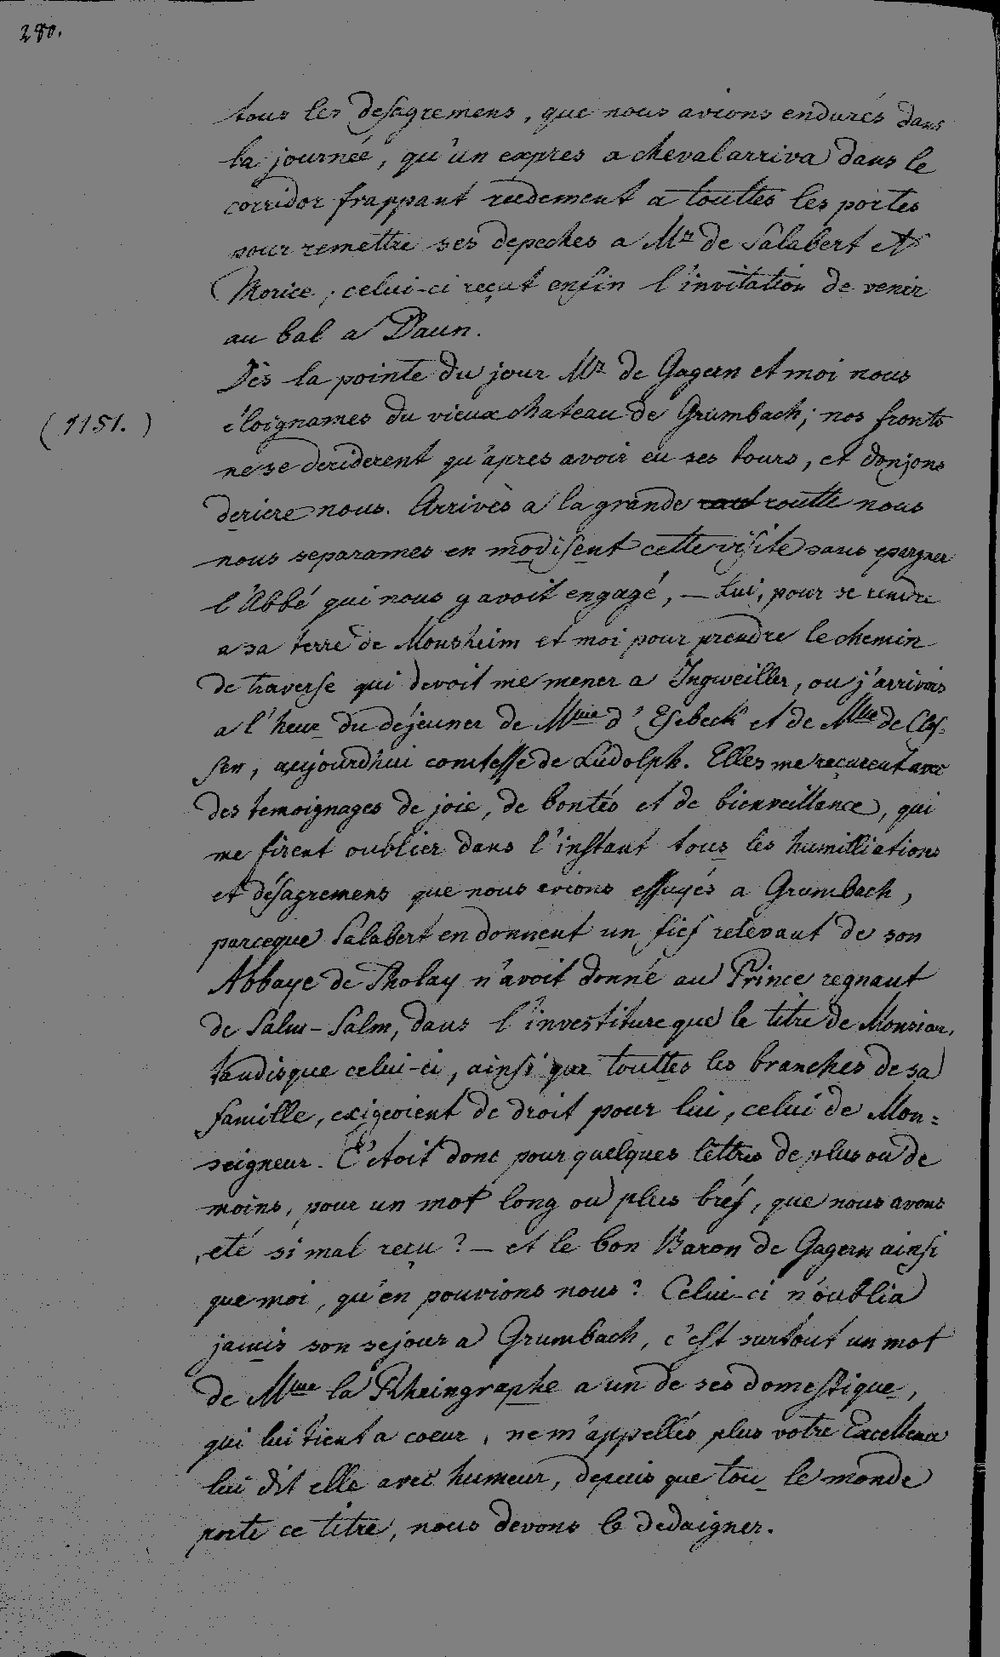 280.
tous les desagremens, que nous avions endurés dans
la journeé, qu'un expres a cheval arriva dans le
corridor frappant reedement a touttes les portes
pour remettre ses depeches a Mr de Salabert et
Morice; celui-ci reçut enfin l'invitation de venir
au bal a Daun.
Dès la pointe du jour Mr de Gagern et moi nous
(1151.) éloignames du vieux chateau de Grumbach; nos fronts
ne se deriderent qu'apres avoir eu ses tours, et donjons
deriere nous. Arrivès a la grande routte nous
nous separames en modisent cette visite sans epargner
l'Abbé qui nous y avoit engagé, — Lui, pour se rendre
a sa terre de Monsheim et moi pour prendre le chemin
de traverse qui devoit me mener a Ingweiller, ou j'arrivois
a l'heur du déjeuner de Mme d'Esebeck et de Mlle de Cloj-
sen, aujourd'hui comtesse de Ludolph. Elles me reçurent avec
des temoignages de joie, de bontés et de bienveillance, qui
me firent oublier dans l'instant tous les humilliations
et désagremens que nous evions essuyés a Grumbach,
parceque Salabert en donnent un fief relevant de son
Abbaye de Tholay n'avoit donné au Prince regnant
de Salm-Salm, dans l'investiture que le titre de Monsieur,
tandisque celui-ci, ainsi que touttes les branches de sa
famille, exigeoient de droit pour lui, celui de Mon=
seigneur. C'etoit donc pour quelques lettres de plus ou de
moins, pour un mot long ou plus bref, que nous avons
eté si mal reçu? — et le bon Baron de Gagern ainsi
que moi, qu'en pouvions nous? Celui-ci n'oublia
jamis son sejour a Grumbach, c'est surtout un mot
de Mme la Rheingraphe a un de ses domestique,
qui lui tient a coeur, ne m'appellés plus votre Excellence
lui dit elle avec humeur, depuis que tou le monde
porte ce titre, nous devons le dedaigner.